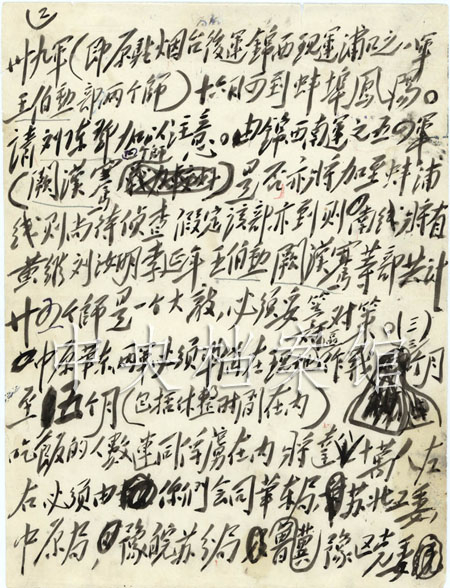 (2)
卅九军(即原驻烟台後运錦西现运浦口之一军
王伯勋部两个师)十六日可到蚌埠鳳陽。
請刘陈邓加以注意。由錦西南运之五四军
(阙漢騫四个师)是否亦將加至蚌浦
线则尚待侦查,假定该部亦到则南线將有
黄维刘汝明李延年王伯勋阙漢騫等部共计
廿五个师是一个大敌,必须妥筹对策。(三)
中原華东两军必须準备在现地区作战三个月
至五个月(包括休整时间在内)
吃飯的人数連同俘虏在内將達八十萬人左
右必须由你們会同華东局,苏北工委
中原局,豫皖苏分局魯冀豫区党委
中央档案馆